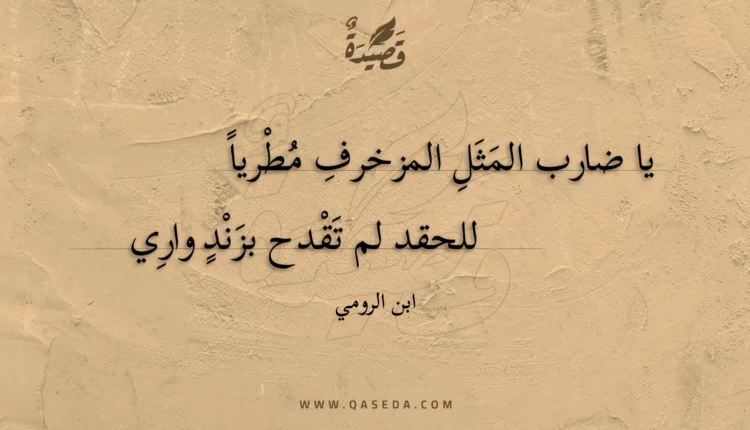 قَصِيْدَةٌ
يا ضارب المَثَلِ المزخرفِ مُطْرياً
للحقد لم تَقْدح بزَنْدٍ وارِي
ابن الرومي
WWW.QASEDA.COM